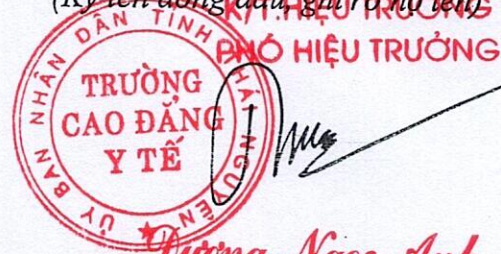 (Ký tên đóng dấu, ghi rõ họ tên)
K/T.HIỆU TRƯỞNG
PHÓ HIỆU TRƯỞNG
ỦY BAN NHÂN DÂN TỈNH THÁI NGUYÊN
TRƯỜNG
CAO ĐẲNG
Y TẾ
Dương Ngọc Anh